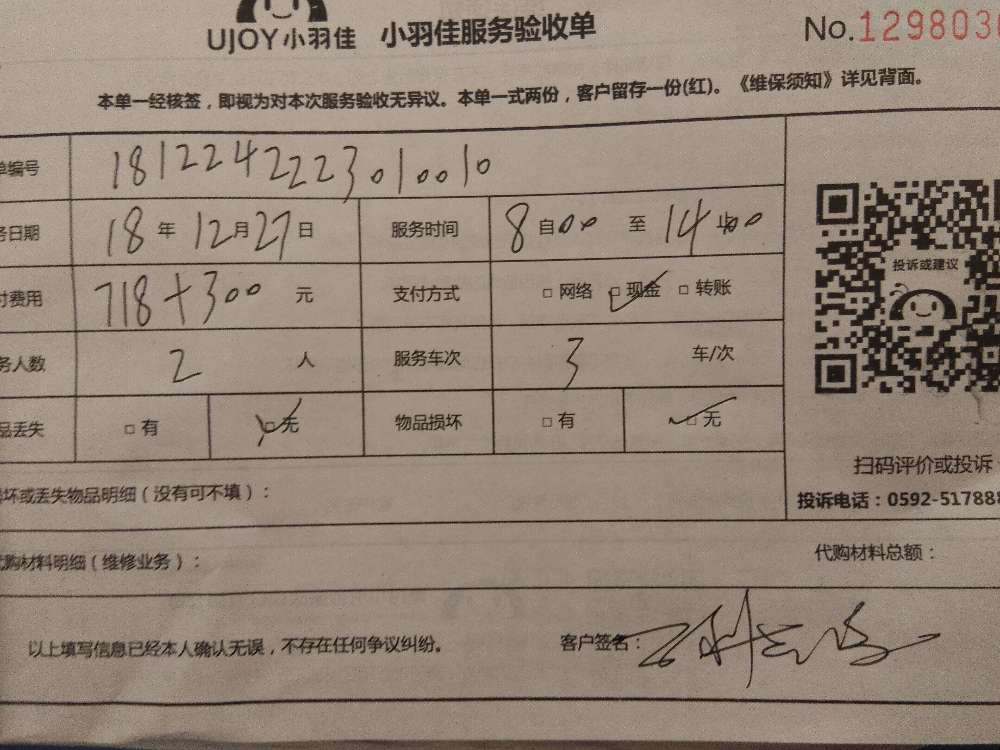 UJOY小羽佳 小羽佳服务验收单 No.1298030
本单一经核签，即视为对本次服务验收无异议。本单一式两份，客户留存一份(红)。《维保须知》详见背面。
单编号 1812242223010010
务日期 18年12月27日 服务时间 8自00至14 00
付费用 718+300元 支付方式 □网络 □现金 □转账
务人数 2人 服务车次 3车/次
品丢失 □有 □无 物品损坏 □有 □无
投诉或建议
扫码评价或投诉
投诉电话：0592-51788
损坏或丢失物品明细（没有可不填）：
代购材料明细（维修业务）： 代购材料总额：
以上填写信息已经本人确认无误，不存在任何争议纠纷。 客户签名：